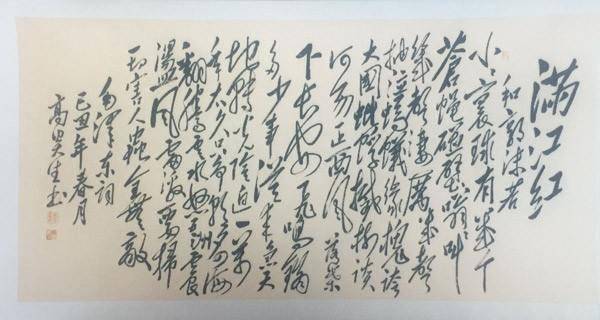 满江红
和郭沫若
小小寰球有几个
苍蝇碰壁嗡嗡叫
幾聲凄厲幾聲
抽泣螞蟻缘槐誇
大國蚍蜉撼樹談
何易正西风落葉
下长安飞鸣镝
多少事从来急天
地转光陰迫一万
年太久只争朝夕四海
翻腾云水怒五洲震
盪风雷激要掃
一切害人虫全無敵
毛澤东词
己丑年春月
高 生书